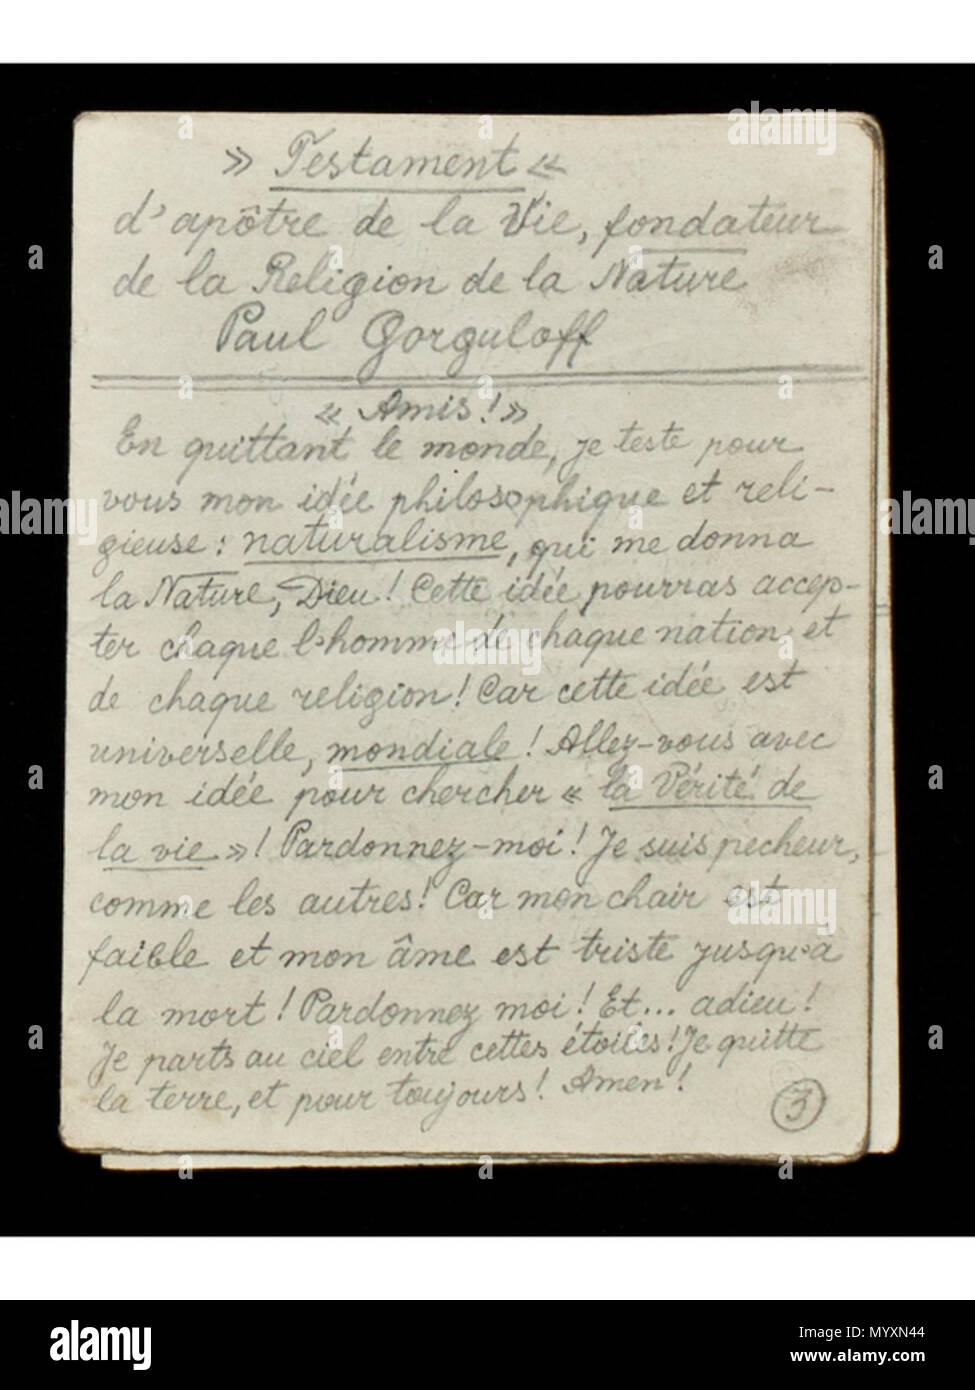 » Testament «
d'apôtre de la Vie, fondateur
de la Religion de la Nature
Paul Gorguloff
« Amis! »
En quittant le monde, je teste pour
vous mon idée philosophique et reli-
gieuse: naturalisme, qui me donna
la Nature, Dieu! Cette idée pourras accep-
ter chaque l'homme de chaque nation et
de chaque religion! Car cette idée est
universelle, mondiale! Allez-vous avec
mon idée pour chercher « la Vérité de
la vie »! Pardonnez-moi! Je suis pecheur,
comme les autres! Car mon chair est
faible et mon âme est triste jusqu'à
la mort! Pardonnez moi! Et... adieu!
Je parts au ciel entre cettes étoiles! Je quitte
la terre, et pour toujours! Amen!
3
alamy
alamy
alamy
alamy
alamy
a a a a a a a a a a a a
alamy
Image ID: MYXN44
www.alamy.com